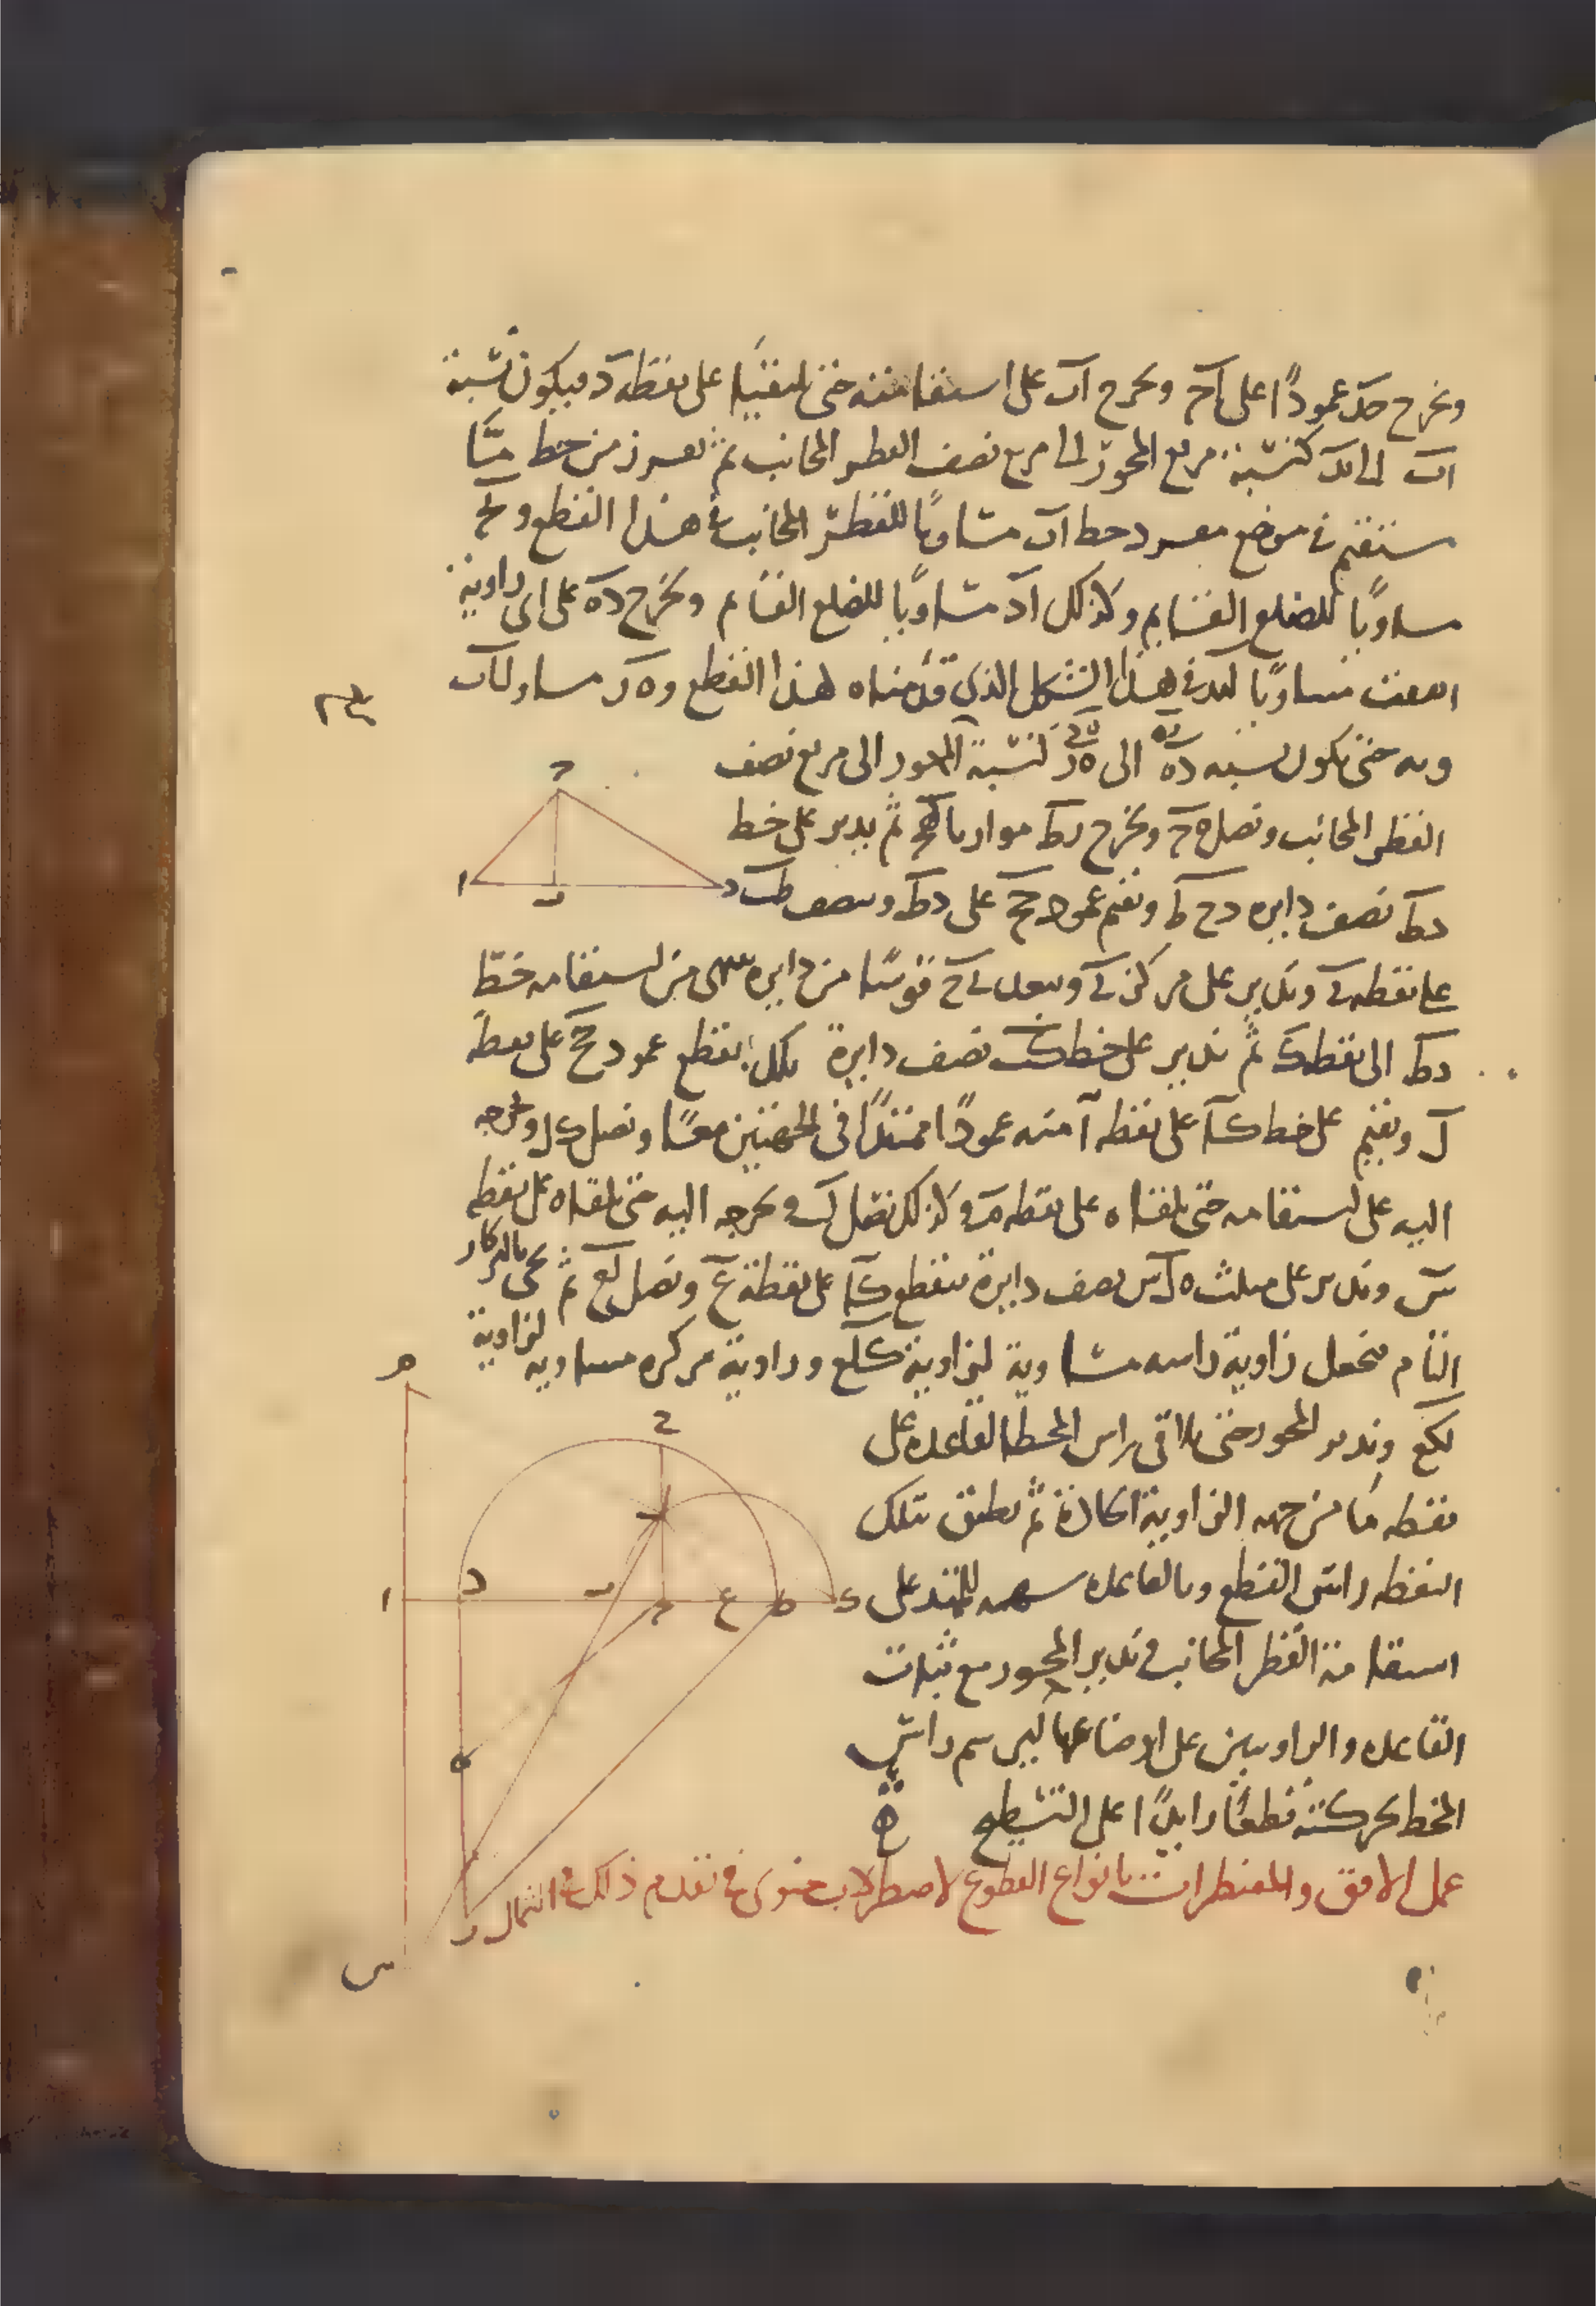 ونخرج حد عمودًا على اح ونخرج اب على استقامته حتى يلتقيا على نقطة د فيكون نسبة
اب الى بد كنسبة مربع المحور الى مربع نصف القطر المجانب ثم نفرز من خط ما
مستقيم في موضع مفرد خط اب مساويًا للقطر المجانب في هذا القطع و
مساويًا للضلع القايم وكذلك اد مساويًا للضلع القايم ونخرج ده على اى زاوية
اتفقت مساويًا لبد في هذا الشكل الذى قدمناه لهذا القطع و ه ر مساو لاب
حتى يكون نسبة ده الى ه ر كنسبة المحور الى مربع نصف
القطر المجانب ونصل ه ح ونخرج رط موازيا ثم ندير على خط
دط نصف دايرة د ح ط ونقيم عمود ح على دط وننصف طب
على نقطة ى وندير على مركز ى وببعد ى ح قوسًا من دايرة من استقامه خط
دط الى نقطة ك ثم ندير على خط نصف دايرة يقطع عمود ح على نقطة
ل ونقيم على خط كا على نقطة ا منه عمودًا ممتدًا فى الجهتين معًا ونصل كل ونخرجه
اليه على استقامه حتى يلقاه على نقطة م وكذلك نصل لب ونخرجه اليه حتى يلقاه على نقطة
س وندير على مثلث نصف دايرة تقطع كا على نقطة ع ونصل لع ثم بالبركار
التام فنجعل زاوية راسه مساوية لزاوية كلع وزاوية مركزه مساويه لزاوية
لكع وندير المحور حتى يلاقى راس المخط القاعده على
نقطه ما من جهة الزاوية الحادة ثم نطبق تلك
النقطه راس القطع وبالقاعده سهمه الممتد على
استقامة القطر المجانب وندير المحور مع ثبات
القاعده والزاويتين على اوضاعها ليرسم راس
المخط بحركته قطعًا زايدًا على التسطيح
عمل الافق والمقنطرات بانواع القطوع لاصطرلاب جنوبى تقدم ذلك فى الشمال
ح
ا
ب
د
م
ح
ل
ا
د
ب
ح
ع
ط
ك
ه
ر
س